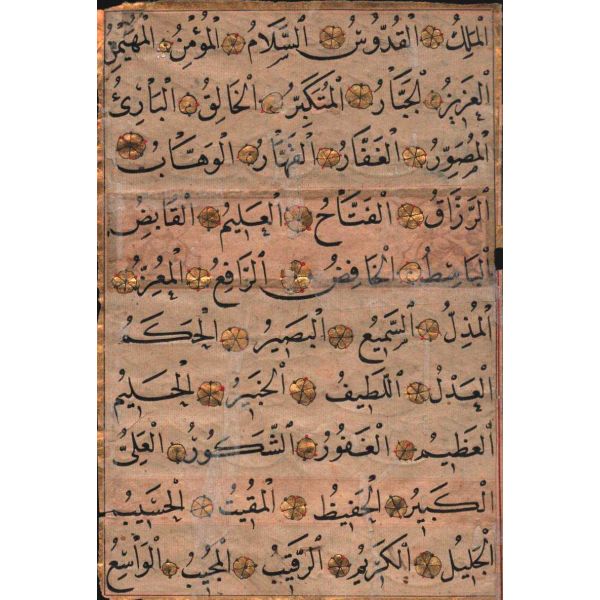 الْمَلِكُ الْقُدُّوسُ السَّلَامُ الْمُؤْمِنُ الْمُهَيْمِنُ
الْعَزِيزُ الْجَبَّارُ الْمُتَكَبِّرُ الْخَالِقُ الْبَارِئُ
الْمُصَوِّرُ الْغَفَّارُ الْقَهَّارُ الْوَهَّابُ
الرَّزَّاقُ الْفَتَّاحُ الْعَلِيمُ الْقَابِضُ
الْبَاسِطُ الْخَافِضُ الرَّافِعُ الْمُعِزُّ
الْمُذِلُّ السَّمِيعُ الْبَصِيرُ الْحَكَمُ
الْعَدْلُ اللَّطِيفُ الْخَبِيرُ الْحَلِيمُ
الْعَظِيمُ الْغَفُورُ الشَّكُورُ الْعَلِيُّ
الْكَبِيرُ الْحَفِيظُ الْمُقِيتُ الْحَسِيبُ
الْجَلِيلُ الْكَرِيمُ الرَّقِيبُ الْمُجِيبُ الْوَاسِعُ